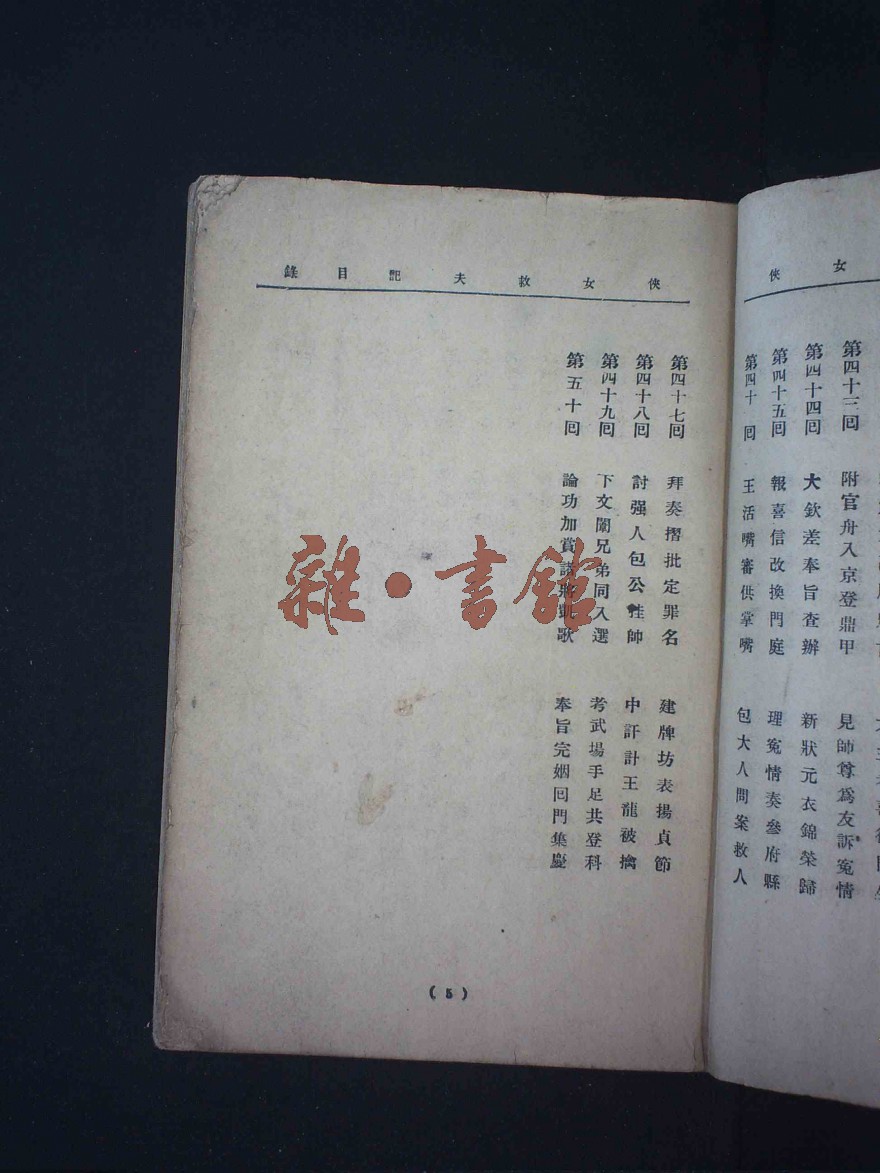 女俠
第四十三回 附官舟入京登鼎甲 見師尊爲友訴冤情
第四十四回 大欽差奉旨查辦 新狀元衣錦榮歸
第四十五回 報喜信改換門庭 理冤情奏參府縣
第四十 回 王活嘴審供掌嘴 包大人問案救人
俠女救夫記目錄
第四十七回 拜奏摺批定罪名 建牌坊表揚貞節
第四十八回 討强人包公挂帥 中計王龍被擒
第四十九回 下文闈兄弟同入選 考武場手足共登科
第五十回 論功加賞 凱歌 奉旨完姻回門集慶
(5)
雜·書館